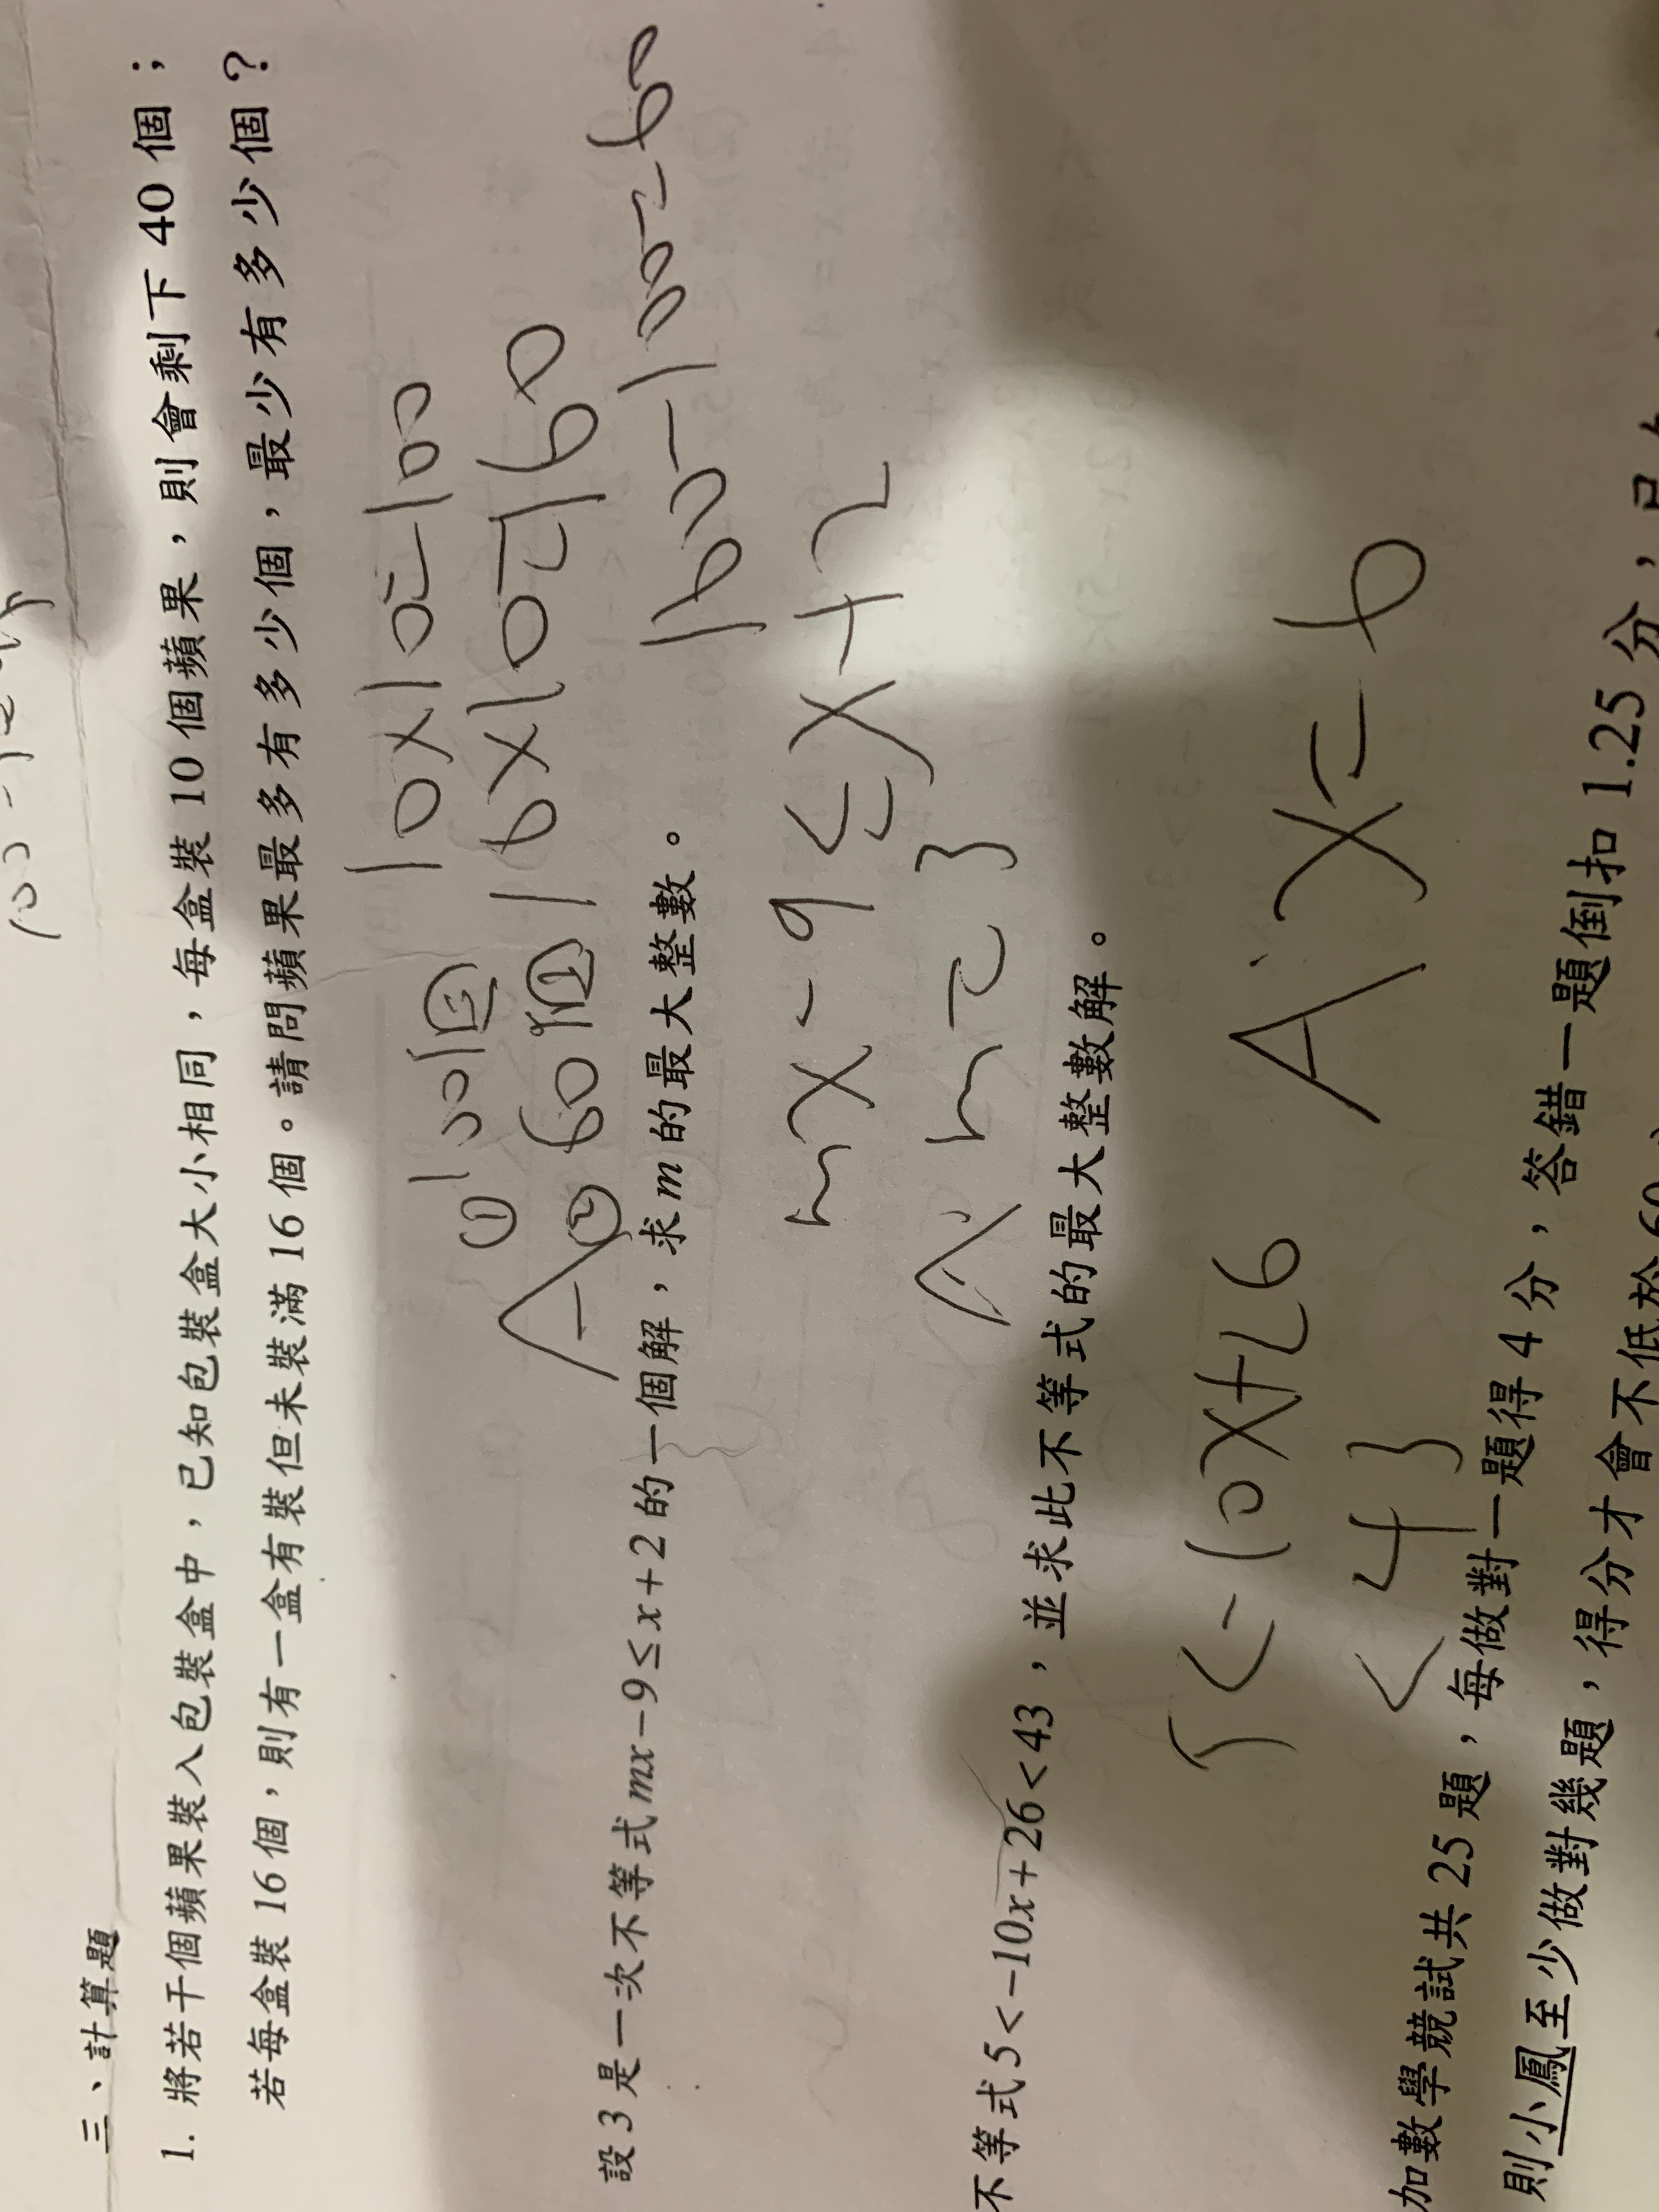 三、計算題
1. 將若干個蘋果裝入包裝盒中，已知包裝盒大小相同，每盒裝 10 個蘋果，則會剩下 40 個；
若每盒裝 16 個，則有一盒有裝但未裝滿 16 個。請問蘋果最多有多少個，最少有多少個？
10×10=100
16×10=160
160-100=60
A
① 100個
② 60個
設 3 是一次不等式 mx-9≤x+2 的一個解，求 m 的最大整數。
mx-9≤x+2
A: m=3
不等式 5<-10x+26<43，並求此不等式的最大整數解。
5<-10x+26
<43
A: x=6
加數學競試共 25 題，每做對一題得 4 分，答錯一題倒扣 1.25 分，
則小鳳至少做對幾題，得分才會不低於